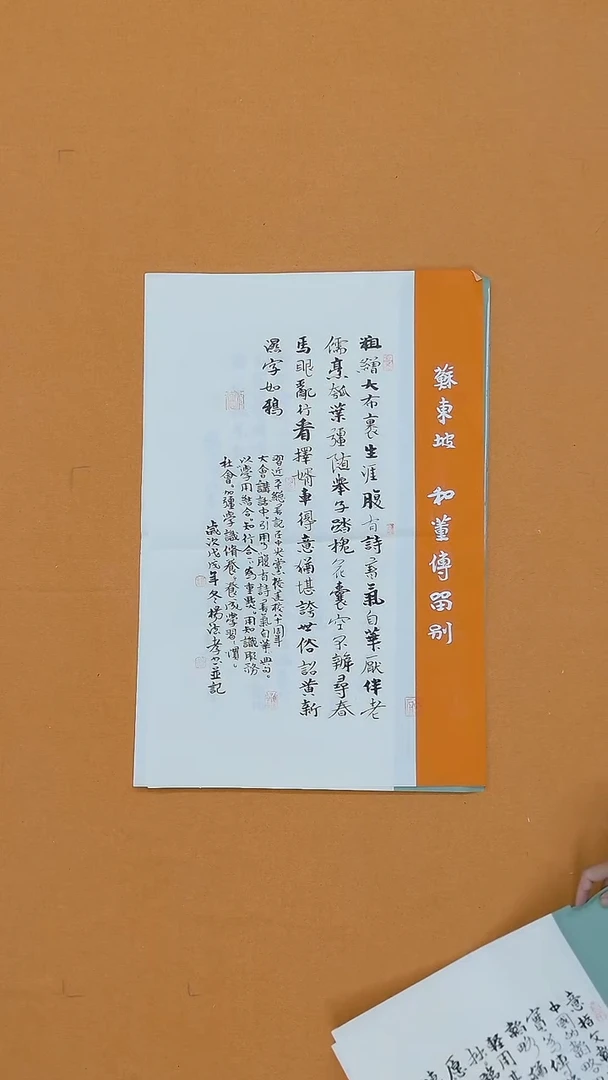 蘇東坡 和董傳留别
粗繒大布裹生涯腹有詩書氣自華厭伴老
儒烹瓠葉强隨舉子踏槐花囊空不辦尋春
馬眼亂行看擇婿車得意猶堪誇世俗詔黄新
濕字如鴉
習近平總書記在中央黨校建校八十周年
大會講話中引用了腹有詩書氣自華典句。
以學用結合知行合一為重點。用知識服務
社會。加强學識脩養。養成學習習慣。
歲次戊戌年冬楊
並記
意指
中國
寶
輕
願